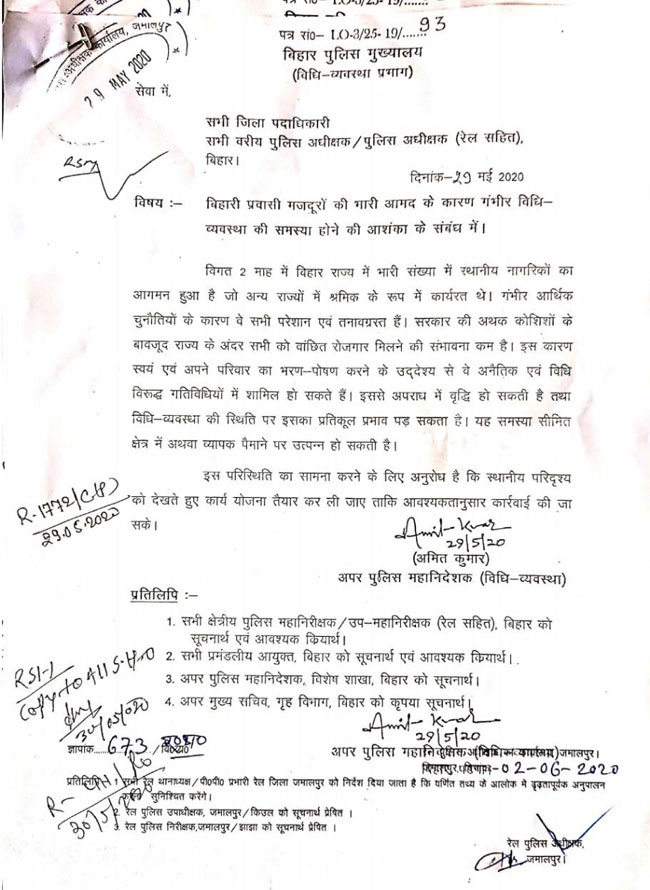 पत्र सं०- L.O-3/25-19/......
अधीक्षक कार्यालय, जमालपुर
29 MAY 2020
पत्र सं०- I.O-3/25-19/......93
बिहार पुलिस मुख्यालय
(विधि-व्यवस्था प्रभाग)
सेवा में,
सभी जिला पदाधिकारी
सभी वरीय पुलिस अधीक्षक/पुलिस अधीक्षक (रेल सहित),
बिहार।
दिनांक-29 मई 2020
विषय :- बिहारी प्रवासी मजदूरों की भारी आमद के कारण गंभीर विधि-
व्यवस्था की समस्या होने की आशंका के संबंध में।
विगत 2 माह में बिहार राज्य में भारी संख्या में स्थानीय नागरिकों का
आगमन हुआ है जो अन्य राज्यों में श्रमिक के रूप में कार्यरत थे। गंभीर आर्थिक
चुनौतियों के कारण वे सभी परेशान एवं तनावग्रस्त हैं। सरकार की अथक कोशिशों के
बावजूद राज्य के अंदर सभी को वांछित रोजगार मिलने की संभावना कम है। इस कारण
स्वयं एवं अपने परिवार का भरण-पोषण करने के उद्देश्य से वे अनैतिक एवं विधि
विरूद्ध गतिविधियों में शामिल हो सकते हैं। इससे अपराध में वृद्धि हो सकती है तथा
विधि-व्यवस्था की स्थिति पर इसका प्रतिकूल प्रभाव पड़ सकता है। यह समस्या सीमित
क्षेत्र में अथवा व्यापक पैमाने पर उत्पन्न हो सकती है।
इस परिस्थिति का सामना करने के लिए अनुरोध है कि स्थानीय परिदृश्य
को देखते हुए कार्य योजना तैयार कर ली जाए ताकि आवश्यकतानुसार कार्रवाई की जा
सके।
R-1772/(CR)
29.05.2020
Amit Kumar
29/5/20
(अमित कुमार)
अपर पुलिस महानिदेशक (विधि-व्यवस्था)
प्रतिलिपि :-
1. सभी क्षेत्रीय पुलिस महानिरीक्षक/उप-महानिरीक्षक (रेल सहित), बिहार को
सूचनार्थ एवं आवश्यक कियार्थ।
2. सभी प्रमंडलीय आयुक्त, बिहार को सूचनार्थ एवं आवश्यक कियार्थ।
3. अपर पुलिस महानिदेशक, विशेष शाखा, बिहार को सूचनार्थ।
4. अपर मुख्य सचिव, गृह विभाग, बिहार को कृपया सूचनार्थ।
Copy to All S.H.O
30/05/020
Amit Kumar
29/5/20
ज्ञापांक......673./
अपर पुलिस महानिदेशक
जमालपुर।
02-06-2020
प्रतिलिपि : 1 सभी रेल थानाध्यक्ष/पी०पी० प्रभारी रेल जिला जमालपुर को निर्देश दिया जाता है कि वर्णित तथ्य के आलोक मे दृढ़तापूर्वक अनुपालन
सुनिश्चित करेंगे।
2. रेल पुलिस उपाधीक्षक, जमालपुर/किउल को सूचनार्थ प्रेषित ।
3 रेल पुलिस निरीक्षक,जमालपुर/झाझा को सूचनार्थ प्रेषित ।
30/5/2020
रेल पुलिस अधीक्षक,
जमालपुर।